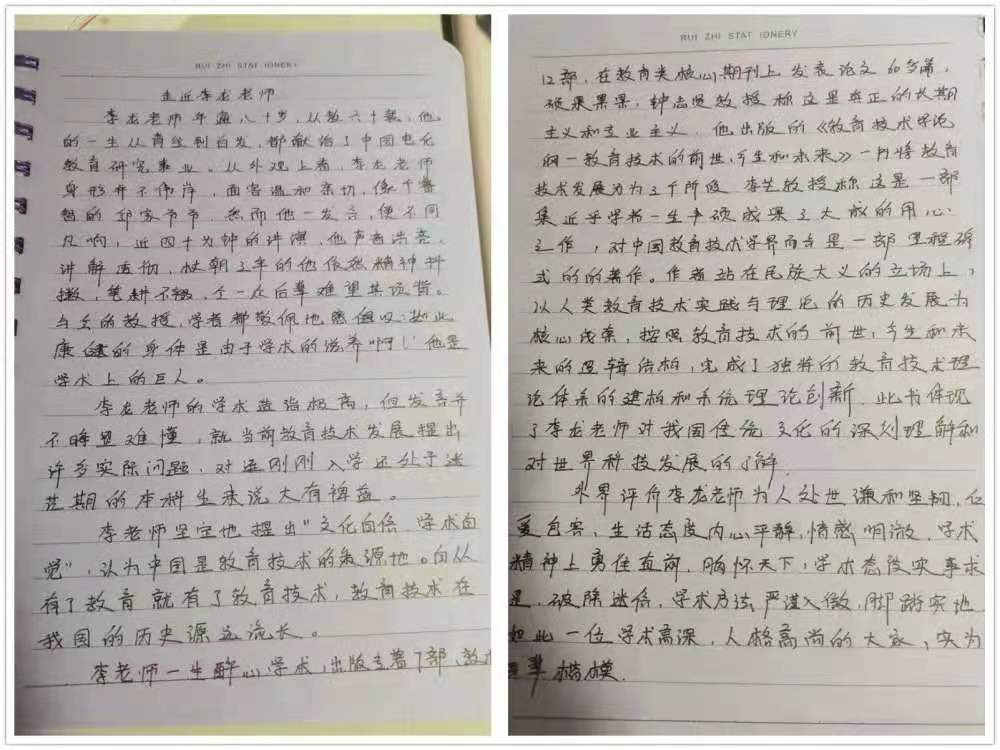 RUI ZHI STATIONERY
走近李龙老师
李龙老师年逾八十岁，从教六十载，他
的一生从青丝到白发，都献给了中国电化
教育研究事业。从外观上看，李龙老师
身形并不伟岸，面容温和亲切，像个睿
智的邻家爷爷。然而他一发言，便不同
凡响，近四十分钟的讲演，他声音洪亮，
讲解透彻，杖朝之年的他依然精神抖
擞，笔耕不辍，令一众后辈难望其项背。
与会的教授，学者都敬佩地感慨叹：如此
康健的身体是由于学术的滋养啊！他是
学术上的巨人。
李龙老师的学术造诣极高，但发言并
不晦涩难懂，就当前教育技术发展提出
许多实际问题，对这刚刚入学还处于迷
茫期的本科生来说大有裨益。
李老师坚定地提出“文化自信，学术自
觉”，认为中国是教育技术的发源地。自从
有了教育就有了教育技术，教育技术在
我国的历史源远流长。
李老师一生醉心学术，出版专著7部，教
RUI ZHI STATIONERY
12部，在教育类核心期刊上发表论文60多篇，
硕果累累，钟志贤教授称这是真正的长期
主义和专业主义，他出版的《教育技术学论
纲—教育技术的前世、今生和未来》一书将教育
技术发展分为三个阶段，李芒教授称这是一部
集近乎学者一生中硕成果之大成的用心
之作，对中国教育技术学界而言是一部里程碑
式的的著作。作者站在民族大义的立场上，
以人类教育技术实践与理论的历史发展为
核心线索，按照教育技术的前世，今生和未
来的逻辑结构，完成了独特的教育技术理
论体系的建构和系统理论创新，此书体现
了李龙老师对我国传统文化的深刻理解和
对世界科技发展的了解.
外界评价李龙老师为人处世谦和坚韧，仁
爱包容，生活态度内心平静，情感明澈，学术
精神上勇往直前，胸怀天下，学术态度实事求
是，破除迷信，学术方法严谨入微，脚踏实地
如此一位学术高深，人格高尚的大家，实为
辈楷模.